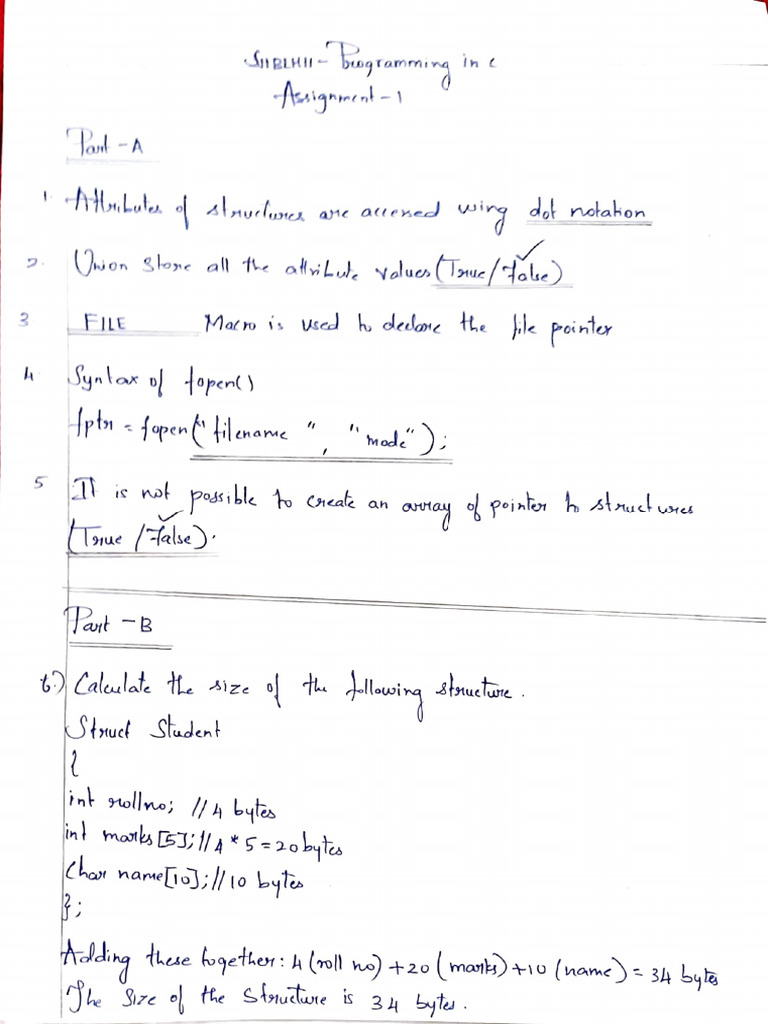 S11BLH11 - Programming in c
Assignment - 1
Part - A
1. Attributes of structures are accessed using dot notation
2. Union store all the attribute values (True/False)
3 FILE Macro is used to declare the file pointer
4 Syntax of fopen()
fptr = fopen("filename", "mode");
5 It is not possible to create an array of pointer to structures
(True/False).
Part - B
6.) Calculate the size of the following structure.
Struct Student
{
int rollno; // 4 bytes
int marks[5]; // 4 * 5 = 20 bytes
Char name[10]; // 10 bytes
};
Adding these together: 4 (roll no) + 20 (marks) + 10 (name) = 34 bytes
The Size of the Structure is 34 bytes.